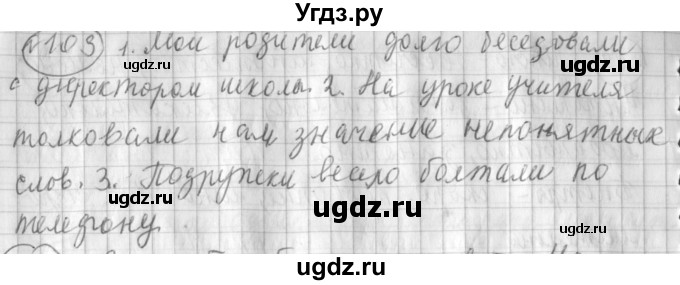 Угдз.ру
№103 1. Мои родители долго беседовали
с директором школы. 2. На уроке учителя
толковали нам значение непонятных
слов. 3. Подружки весело болтали по
телефону.
ugdz.ru
ugdz.ru
ugdz.ru
ugdz.ru
ugdz.ru
ugdz.ru
ugdz.ru
ugdz.ru
ugdz.ru
ugdz.ru